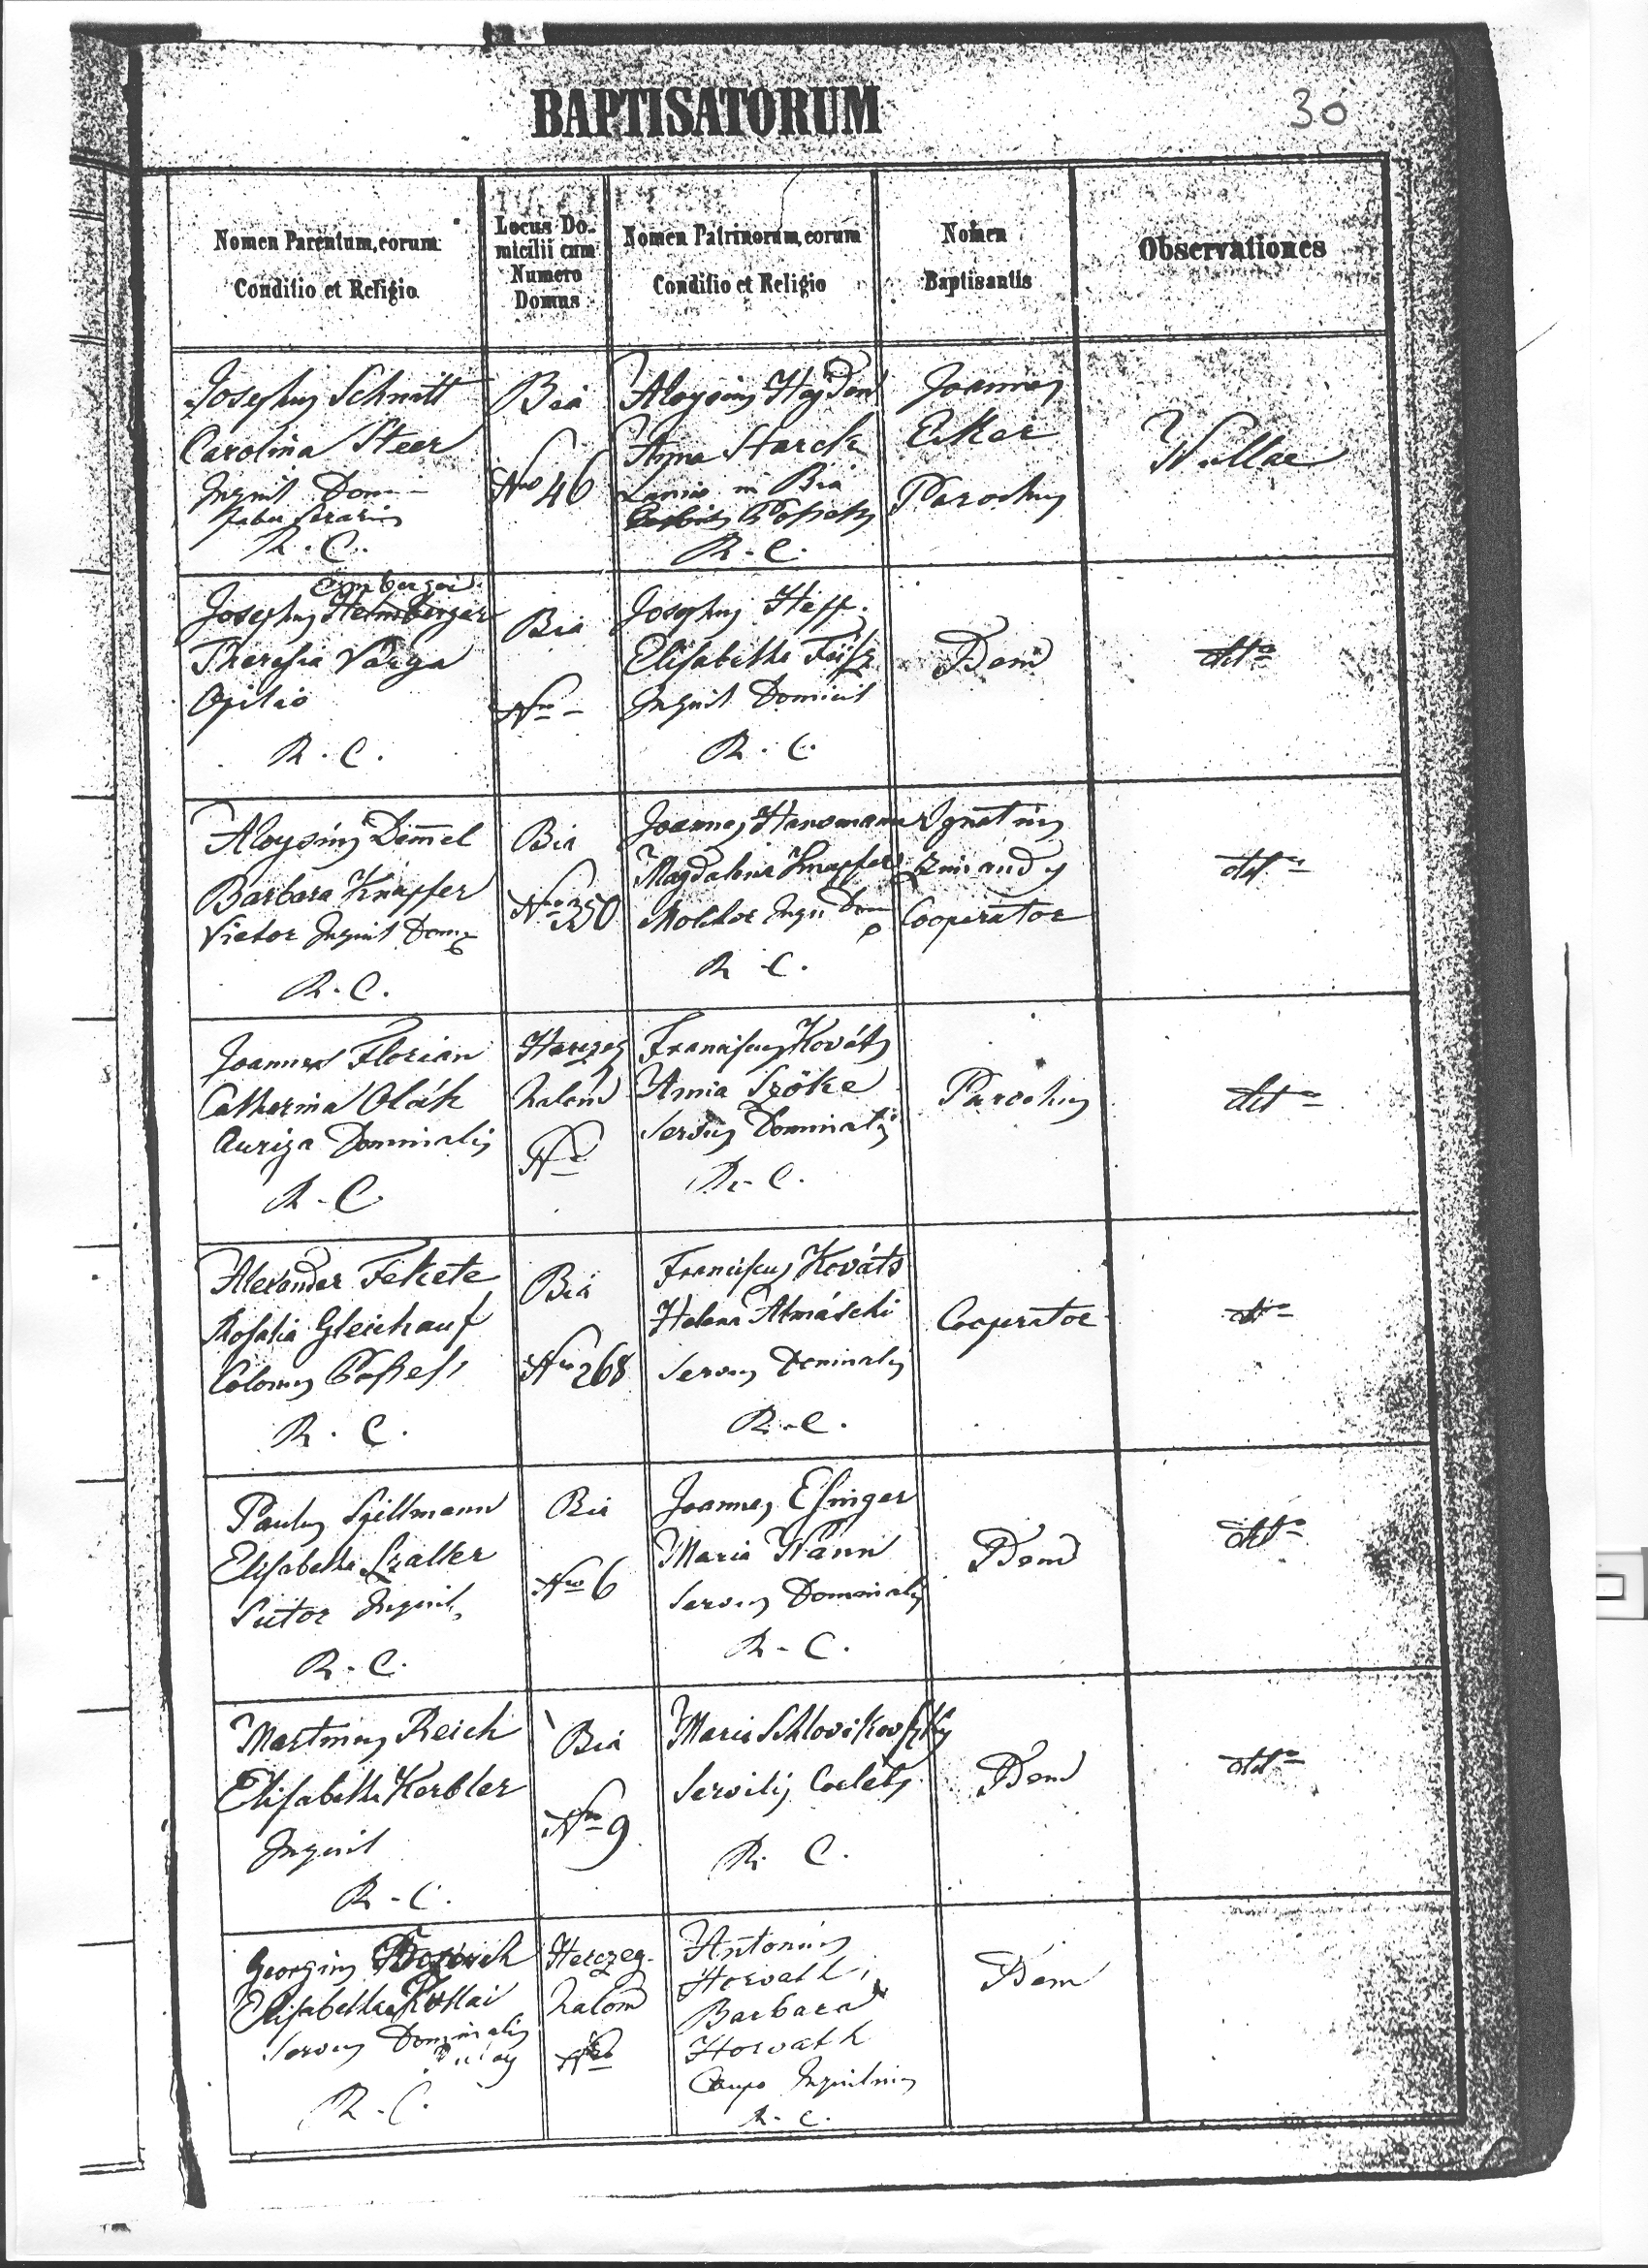 BAPTISATORUM
30
Nomen Parentum, eorum
Conditio et Religio
Locus Do-
micilii cum
Numero
Domus
Nomen Patrinorum, eorum
Conditio et Religio
Nomen
Baptisantis
Observationes
Josephus Schmitt
Carolina Steer
Inquil Domi
faber serarius
R. C.
Bia
Nro 46
Aloysius Hayden
Anna Starck
Lanio in Bia
R. C.
Joannes
Eker
Parochus
Nullae
Josephus
Theresia Varga
Opilio
R. C.
Bia
Nro -
Josephus Heff
Elisabetha
Inquil Domicil
R. C.
Idem
dtto
Aloysius Dem̄el
Barbara Knapfer
Vietor Inquil Dom
R. C.
Bia
Nro 350
Joannes Hansmann
Magdalena Knapfer
Molitor Inqu Dom
R. C.
Ignatius
Cooperator
dtto
Joannes Florian
Catharina Oláh
Auriga Dominalis
R. C
Herczeg
halom
Nro
Franciscus Kováts
Anna Szöke
Servus Dominalis
R. C.
Parochus
dtto
Alexander Fekete
Rosalia Gleichauf
Colonus
R. C.
Bia
Nro 268
Franciscus Kováts
Helena Almáschi
Servus Dominalis
R. C.
Cooperator
dtto
Paulus Spillmann
Elisabetha Szaller
Sutor Inquil
R. C.
Bia
Nro 6
Joannes Esinger
Maria Wann
Servus Dominalis
R. C.
Idem
dtto
Martinus Reich
Elisabetha Kerbler
Inquil
R. C.
Bia
Nro 9
Maria
Servilis Coelebs
R. C.
Idem
dtto
Georgius
Elisabetha
Servus Dominalis
R. C.
Herczeg-
halom
Nro
Antonius
Horvath
Barbara
Horvath
Caupo Inquilinus
R. C.
Idem